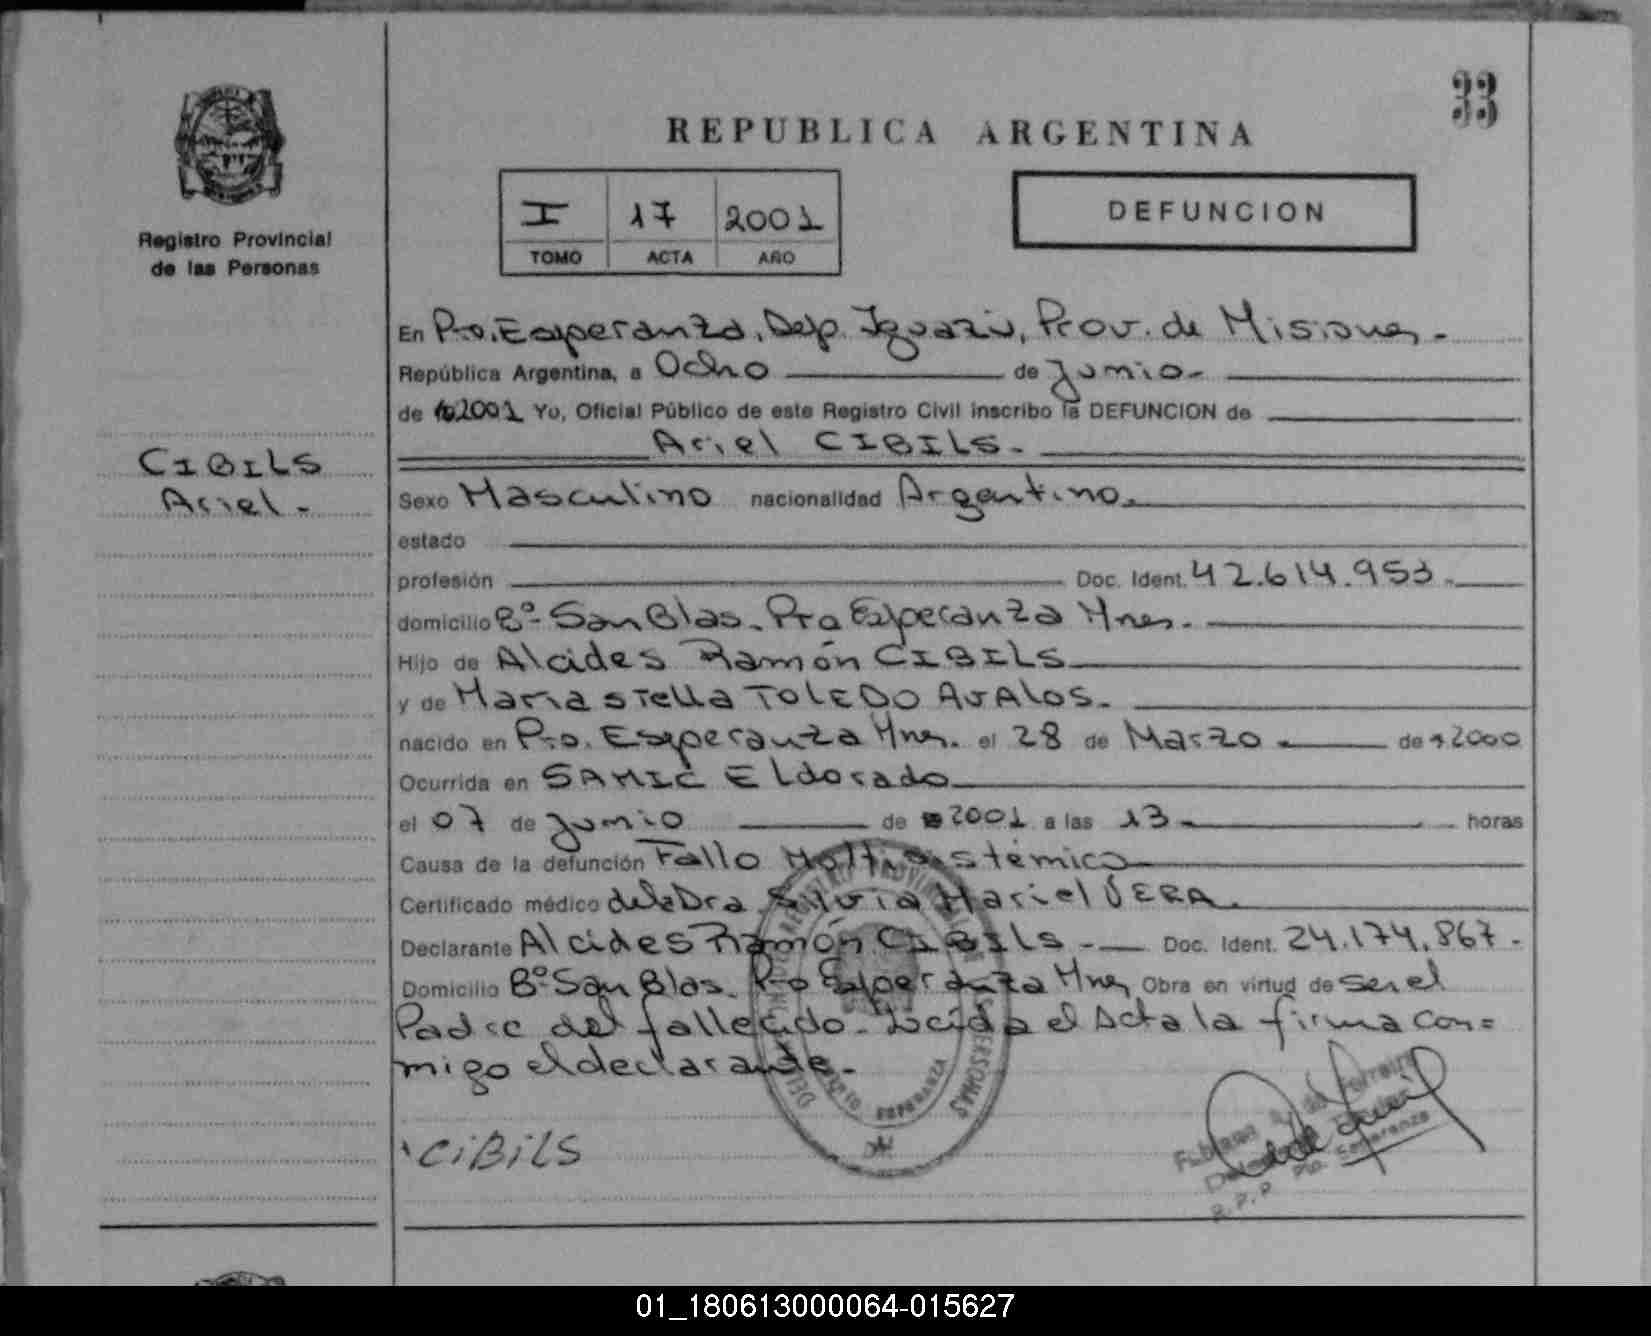 33
REPUBLICA ARGENTINA
I 17 2001
TOMO ACTA AÑO
DEFUNCION
Registro Provincial
de las Personas
CIBILS
Ariel.-
En Pto. Esperanza, Dep. Iguazú, Prov. de Misiones.-
República Argentina, a Ocho de Junio.-
de 2001 Yo, Oficial Público de este Registro Civil inscribo la DEFUNCION de
Ariel CIBILS.-
Sexo Masculino nacionalidad Argentino.
estado
profesión Doc. Ident. 42.614.953.
domicilio Bº- San Blas. Pto Esperanza Mnes.
Hijo de Alcides Ramón CIBILS
y de Maria Stella TOLEDO AVALOS.
nacido en Pto. Esperanza Mnes. el 28 de Marzo de 2000
Ocurrida en SAMIC Eldorado
el 07 de Junio de 2001 a las 13 horas
Causa de la defunción Fallo Multisistémico
Certificado médico de la Dra. Silvia Mariel VERA.
Declarante Alcides Ramón CIBILS Doc. Ident. 24.174.867.
Domicilio Bº San Blas. Pto Esperanza Mnes Obra en virtud de ser el
Padre del fallecido. Leída el Acta la firma con=
migo el declarante.-
CiBiLS
REGISTRO PROVINCIAL DE LAS PERSONAS
PUERTO ESPERANZA
R.P.P. Pto. Esperanza
01_180613000064-015627